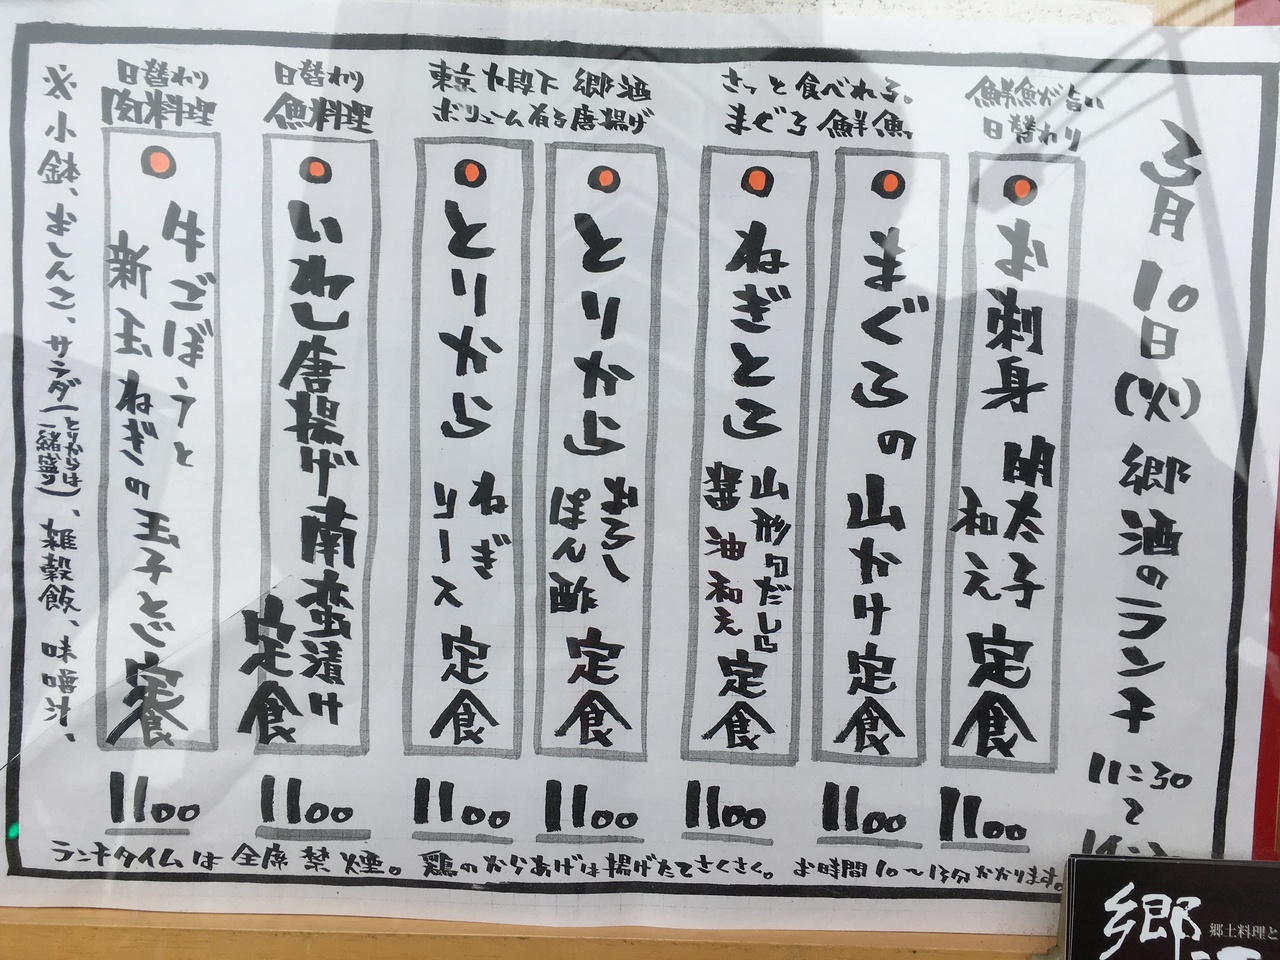 3月10日(火)郷酒のランチ
11:30
〜
鮮魚が旨い
日替わり
お刺身 明太子
和え
定食
1100
さっと食べれる。
まぐろ 鮮魚
まぐろの山かけ定食
1100
ねぎとろ
山形「だし」
醤油和え
定食
1100
東京九段下 郷酒
ボリューム有る唐揚げ
とりから
おろし
ぽん酢
定食
1100
とりから
ねぎ
ソース
定食
1100
日替わり
魚料理
いわし唐揚げ南蛮漬け
定食
1100
日替わり
肉料理
牛ごぼうと
新玉ねぎの玉子とじ定食
1100
※小鉢、おしんこ、サラダ(とりからは
一緒盛り)、雑穀飯、味噌汁、
ランチタイムは全席禁煙。 鶏のからあげは揚げたてさくさく。 お時間10〜13分かかります。
郷
郷土料理と